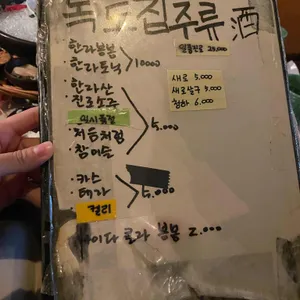 독도집주류 酒
일품진로 28,000
한라봉봉
한라토닉 > 10000
한라산
진로소주
일시품절
처음처럼
참이슬
5,000
새로 5,000
새로살구 5,000
청하 6,000
카스
테라
켈리
5,000
사이다 콜라 봉봉 2.000